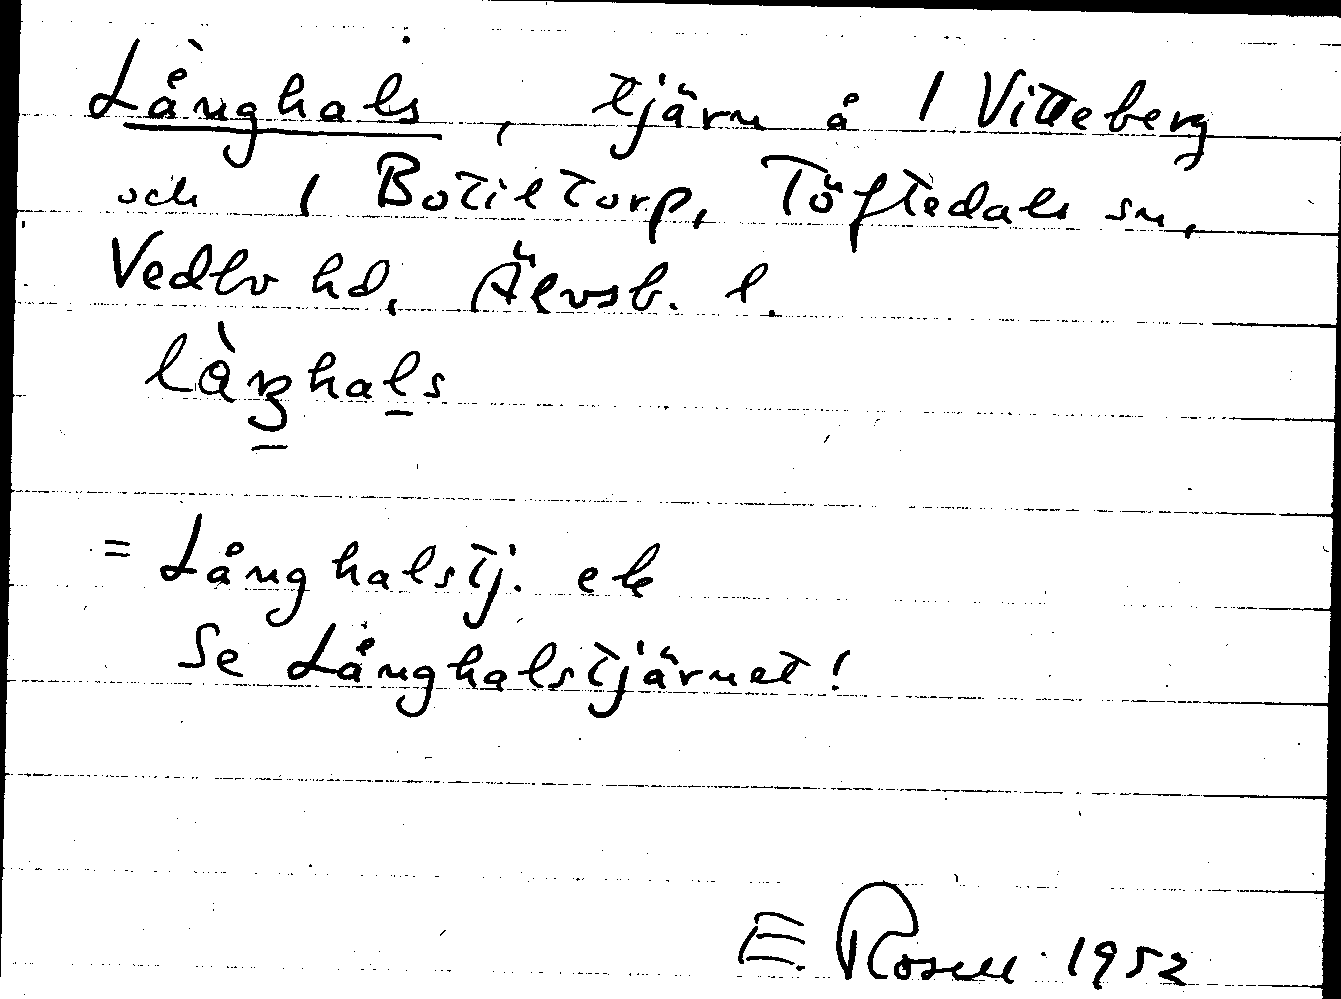 Långhals, tjärn å 1 Vitteberg
och 1 Botiltorp, Töftedals sn,
Vedbo hd, Älvsb. l.
= Långhalstj. ek
Se Långhalstjärnet!
E. Rosell 1952